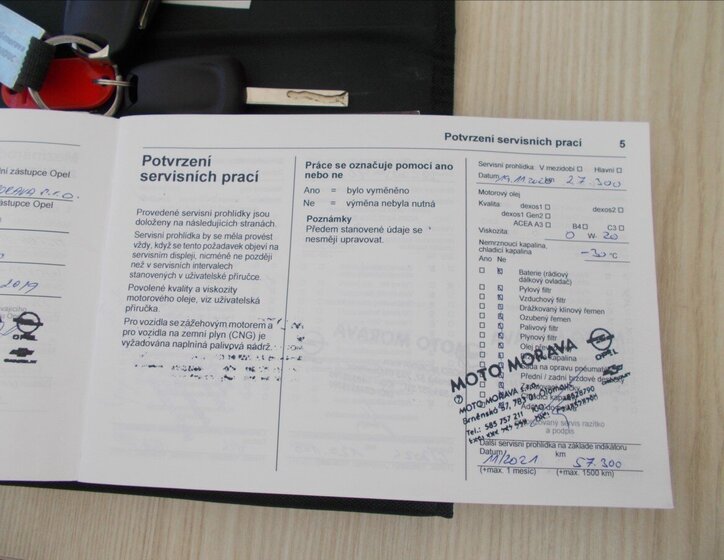 ní zástupce Opel
zástupce Opel
2019
OPEL
CHEVROLET
Potvrzení servisních prací 5
Potvrzení
servisních prací
Provedené servisní prohlídky jsou
doloženy na následujících stranách.
Servisní prohlídka by se měla provést
vždy, když se tento požadavek objeví na
servisním displeji, nicméně ne později
než v servisních intervalech
stanovených v uživatelské příručce.
Povolené kvality a viskozity
motorového oleje, viz uživatelská
příručka.
Pro vozidla se zážehovým motorem a
pro vozidla na zemní plyn (CNG) je
vyžadována naplněná palivová nádrž.
Práce se označuje pomocí ano
nebo ne
Ano = bylo vyměněno
Ne = výměna nebyla nutná
Poznámky
Předem stanovené údaje se
nesmějí upravovat.
Servisní prohlídka: V mezidobí Hlavní
Datum 19.11.2020 km 27.300
Motorový olej
Kvalita: dexos1 dexos2
dexos1 Gen2
ACEA A3 B4 C3
Viskozita: 0 W 20
Nemrznoucí kapalina,
chladicí kapalina -30°C
Ano Ne
Baterie (rádiový
dálkový ovladač)
Pylový filtr
Vzduchový filtr
Drážkovaný klínový řemen
Ozubený řemen
Palivový filtr
Plynový filtr
Olej
kapalina
sada na opravu pneumatik
Přední / zadní brzdové
MOTO MORAVA
OPEL
CHEVROLET
MOTO MORAVA s.r.o.
Brněnská 97, 783 01 Olomouc
Tel.: 585 757 211
servis razítko
a podpis
Další servisní prohlídka na základe indikátoru
Datum km
11/2021 57.300
(+max. 1 mesic) (+max. 1500 km)